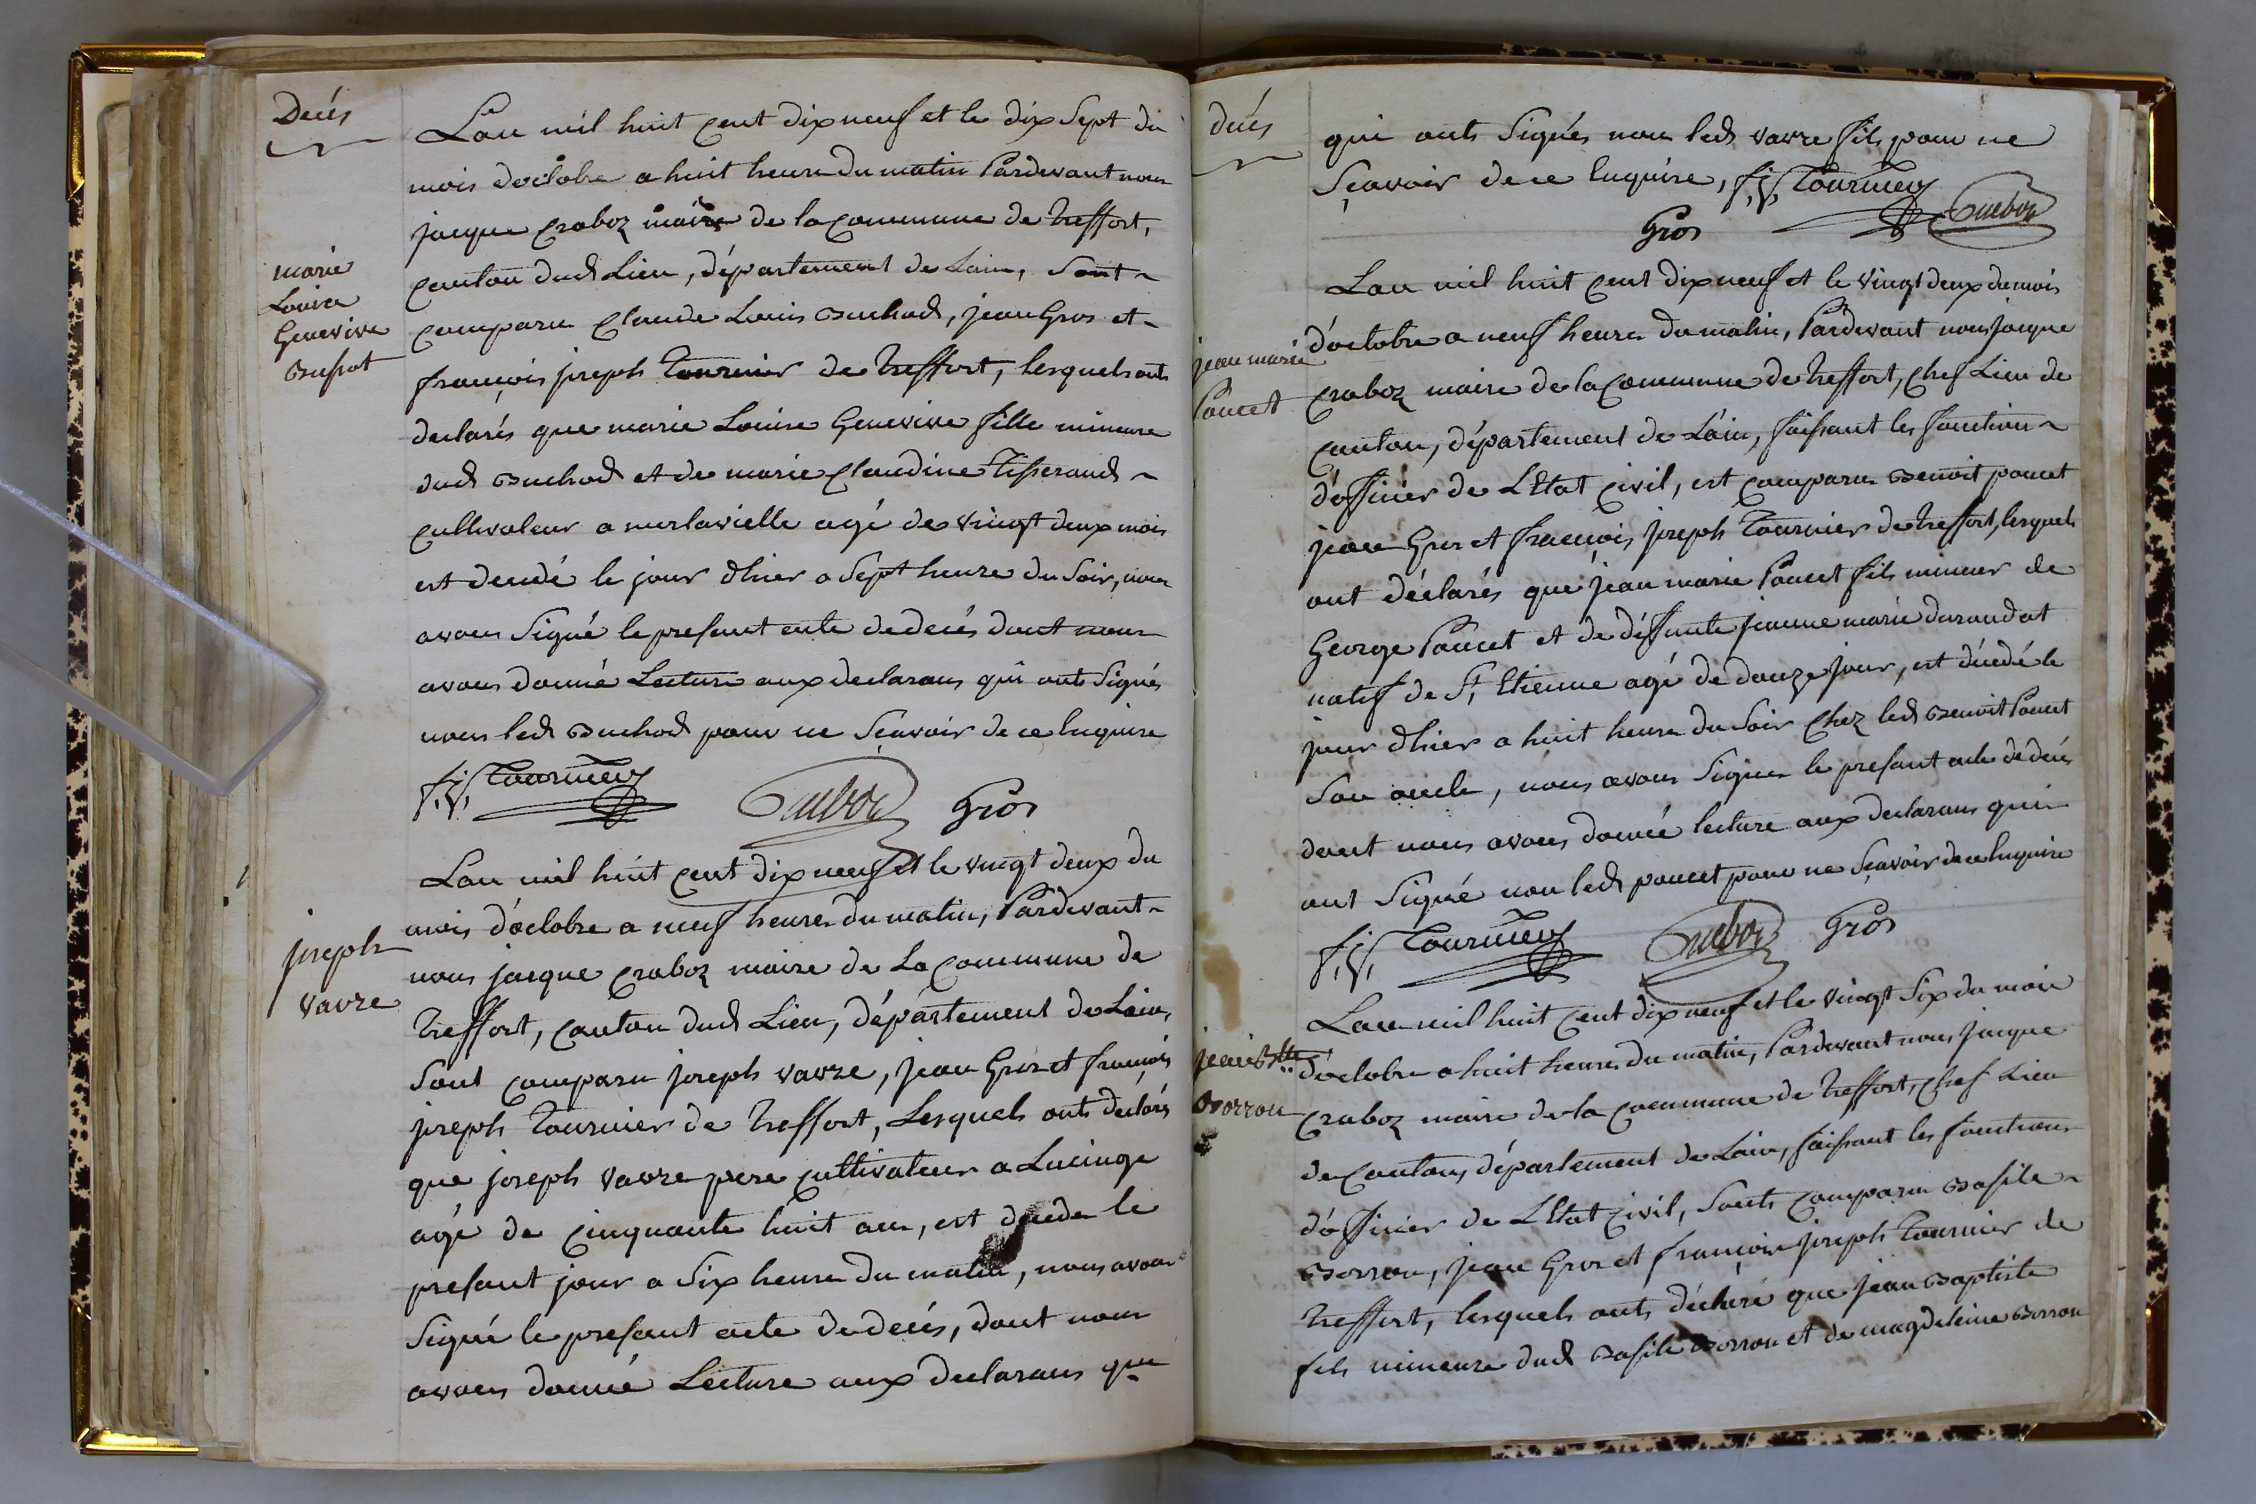 Decés
Lan mil huit cent dix neuf et le dix Sept du
mois doctobre a huit heure du matin Pardevant nous
jacque craboz maire de la commune de treffort,
canton dud Lieu, département de Lain, Sont
marie
Louise
Genevive
comparu claude Louis Buchod, jean Gros et
françois joseph Tournier de treffort, lesquels onts
declarés que marie Louise Genevive fille mineure
dud Buchod et de marie claudine Tisserand
cultivateur a agé de vingt deux mois
est decedé le jour dhier a Sept heure du Soir, nous
avons Signé le presant acte de decés dont nous
avons donné Lecture aux declarans qui onts Signés
non led Buchod pour ne Sçavoir de ce Enquire
f.j. Tournier craboz Gros
joseph
vavre
Lan mil huit cent dix neuf et le vingt deux du
mois d'octobre a neuf heure du matin, Pardevant
nous jacque craboz maire de La commune de
treffort, canton dud Lieu, département de Lain,
Sont comparu joseph vavre, jean Gros et françois
joseph Tournier de treffort, Lesquels onts declarés
que joseph vavre pere cultivateur a Lucinge
agé de cinquante huit ans, est decede le
presant jour a Six heure du matin, nous avons
Signé le presant acte de decés, dont nous
avons donné Lecture aux declarans qui
decés
qui onts Signés non led vavre fils pour ne
Sçavoir de ce Enquire, f.j. Tournier craboz
Gros
jean marie
Poncet
Lan mil huit cent dix neuf et le vingt deux du mois
d'octobre a neuf heure du matin, Pardevant nous jacque
craboz maire de la commune de treffort, chef Lieu de
canton, département de Lain, faissant les fonctions
d'officier de LEtat civil, est comparu Benoit poncet
jean Gros et françois joseph Tournier de treffort, lesquels
ont déclarés que jean marie Poncet fils mineur de
George Poncet et de déffunte jeanne marie durandot
natif de St Etienne agé de douze jour, est décedé le
jour dhier a huit heure du Soir chez led Benoit Poncet
Son oncle, nous avons Signer le presant acte de decés
dont nous avons donné lecture aux declarans qui
ont Signé non led poncet pour ne Sçavoir de ce Enquire
f.j. Tournier craboz Gros
jean Btte
Borron
Lan mil huit cent dix neuf et le vingt Six du mois
d'octobre a huit heure du matin, Pardevant nous jacque
craboz maire de la commune de treffort, chef Lieu
de canton, département de Lain, faissant les fonctions
d'officier de LEtat civil, Sonts comparu Basile
Borron, jean Gros et françois joseph Tournier de
treffort, lesquels onts décleré que jean Baptiste
fils mineure dud Basile Borron et de magdeleine Borron